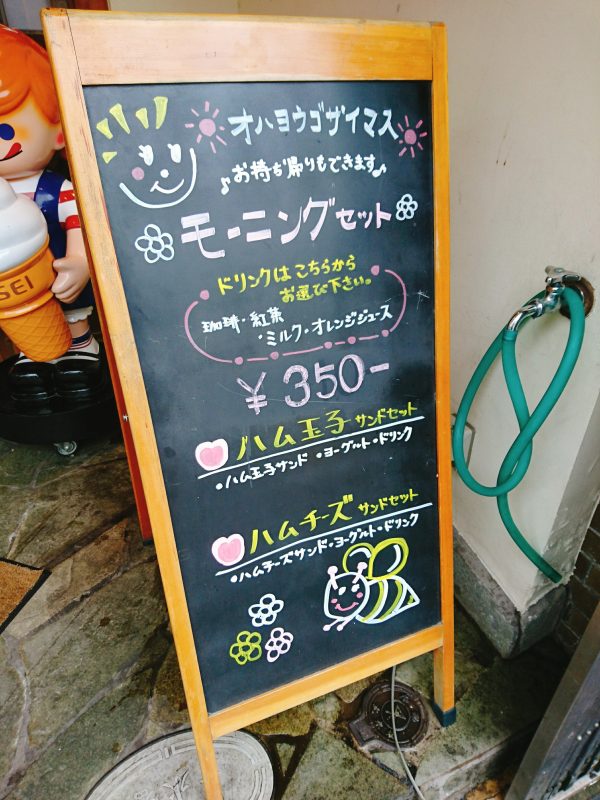 オハヨウゴザイマス
♪お持ち帰りもできます♪
モーニングセット
ドリンクはこちらから
お選び下さい。
珈琲・紅茶
・ミルク・オレンジジュース
¥350-
ハム玉子サンドセット
・ハム玉子サンド・ヨーグルト・ドリンク
ハムチーズサンドセット
・ハムチーズサンド・ヨーグルト・ドリンク
SEI